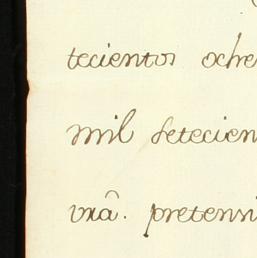 tecientos oche
mil setecien
vrã. pretensi